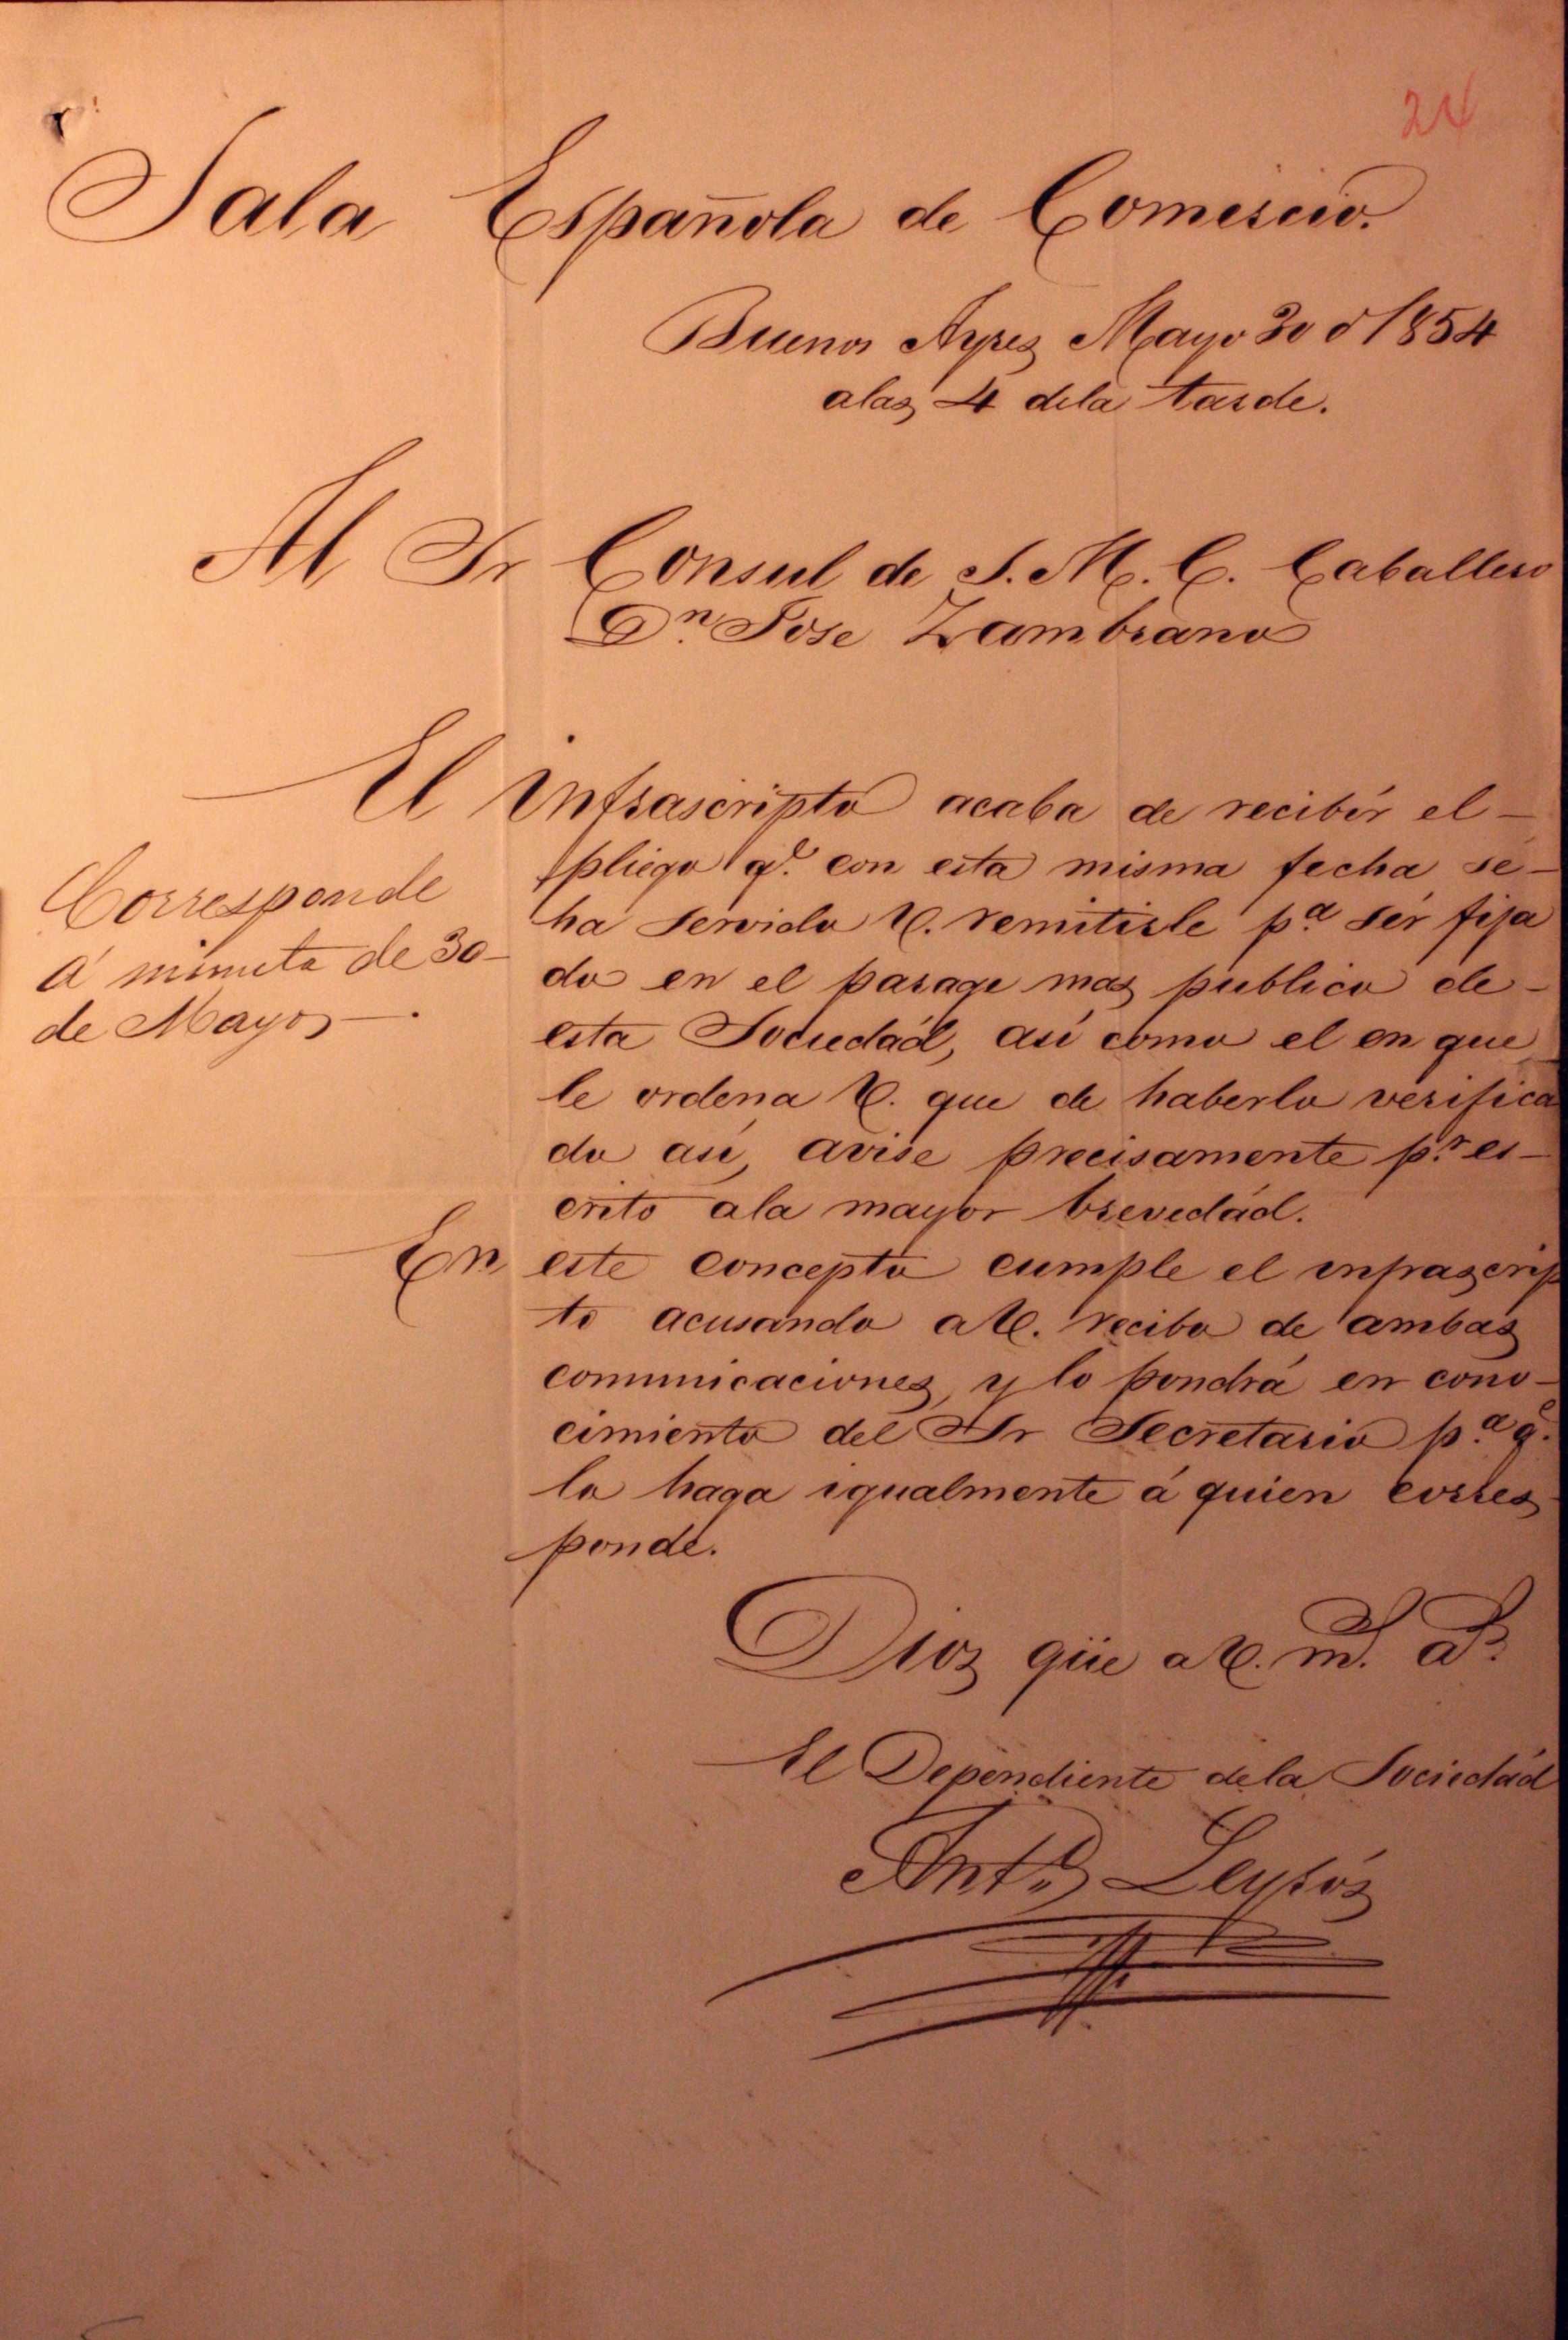 24
Sala Española de Comercio.
Buenos Ayres Mayo 30 d 1854
a las 4 dela tarde.
Al Sr Consul de S. M. C. Caballero
Dn. Jose Zambrano
El infrascripto acaba de recibir el-
pliego qe. con esta misma fecha se-
ha servido V. remitirle pa. ser fija
do en el parage mas publico de-
esta Sociedád, así como el en que
le ordena V. que de haberlo verifica
do así, avise precisamente pr. es-
crito ala mayor brevedád.
Corresponde
á minuta de 30-
de Mayo-.
En este concepto cumple el infrascrip
to acusando a V. recibo de ambas
comunicaciones, y lo pondrá en cono-
cimiento del Sr Secretario pa. qe.
lo haga igualmente á quien corres
ponde.
Dios güe a V. ms. as.
El Dependiente dela Sociedád
Anto.